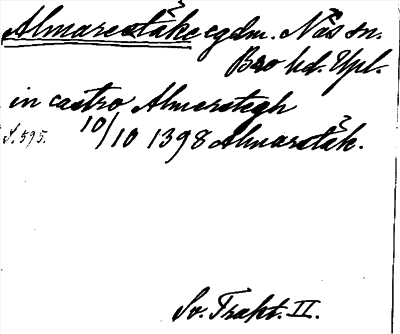 Almarestäke egdm. Näs sn.
Bro hd. Upl.
in castro Almarstegh
S. 595. 10/10 1398 Almarstäk.
Sv. Trakt. II.